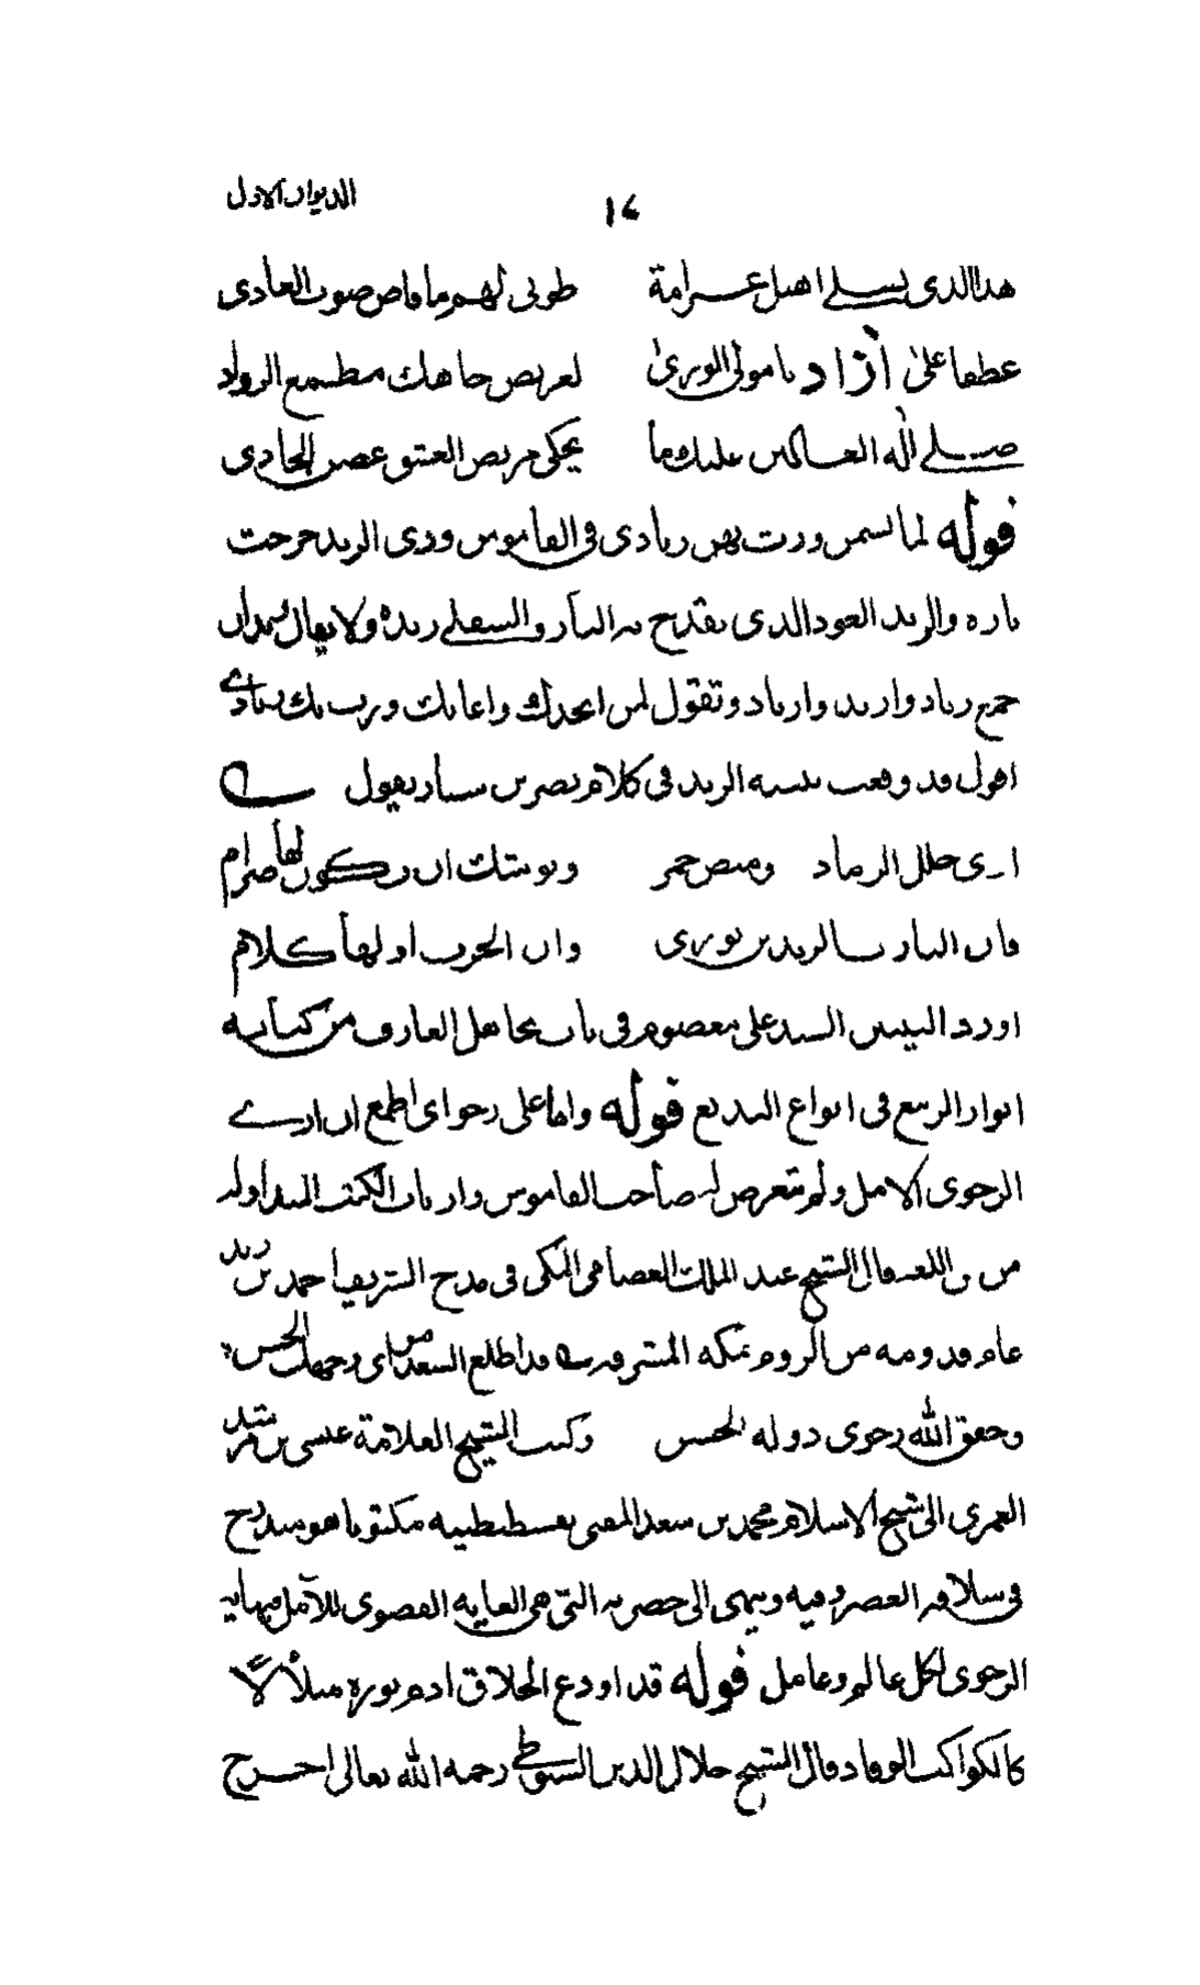 الديوان الاول
١٤
هذا الذي يسلي اهيل غرامة طوبى لهم ما فاض صوب الغادي
عطفا على آزاد يا مولى الورى لعريض جاهك مطمع الرواد
صلى اله العالمين عليك ما يحكي مريض العشق غصن الجادي
قوله لما تسمر ورت بهن زنادي في القاموس وري الزند خرجت
ناره والزند العود الذي يقتدح به النار والسفلى زندة ولا يقال زندتان
جمع زناد وازند وازناد وتقول لمن انجدك واعانك ورت بك زنادي
اقول قد وقعت تثنية الزند في كلام نصر بن سيار يقول
ارى خلل الرماد وميض جمر ويوشك ان يكون لها ضرام
فان النار بالزندين توري وان الحرب اولها كلام
اورد البيتين السيد علي معصوم في باب تجاهل العارف من كتابه
انوار الربيع في انواع البديع قوله وانا على رجواي اطمع ان ارى
الرجوى الامل ولم يتعرض له صاحب القاموس وارباب الكتب المتداولة
من اللغة قال الشيخ عبد الملك العصامي المكي في مدح الشريف احمد بن زيد
عام قدومه من الروم بمكة المشرفة قد اطلع السعد من مراي وجهك الحسن
وحقق الله رجوى دولة الحسن وكتب الشيخ العلامة عيسى بن مرشد
العمري الى شيخ الاسلام محمد بن سعد المفتي بقسطنطينية مكتوبا هو مندرج
في سلافة العصر وفيه وينهى الى حضرته التي هي الغاية القصوى للآمل ونهاية
الرجوى لكل عالم وعامل قوله قد اودع الخلاق ادم نوره متلألأ
كالكواكب الوقاد قال الشيخ جلال الدين السيوطي رحمه الله تعالى اخرج